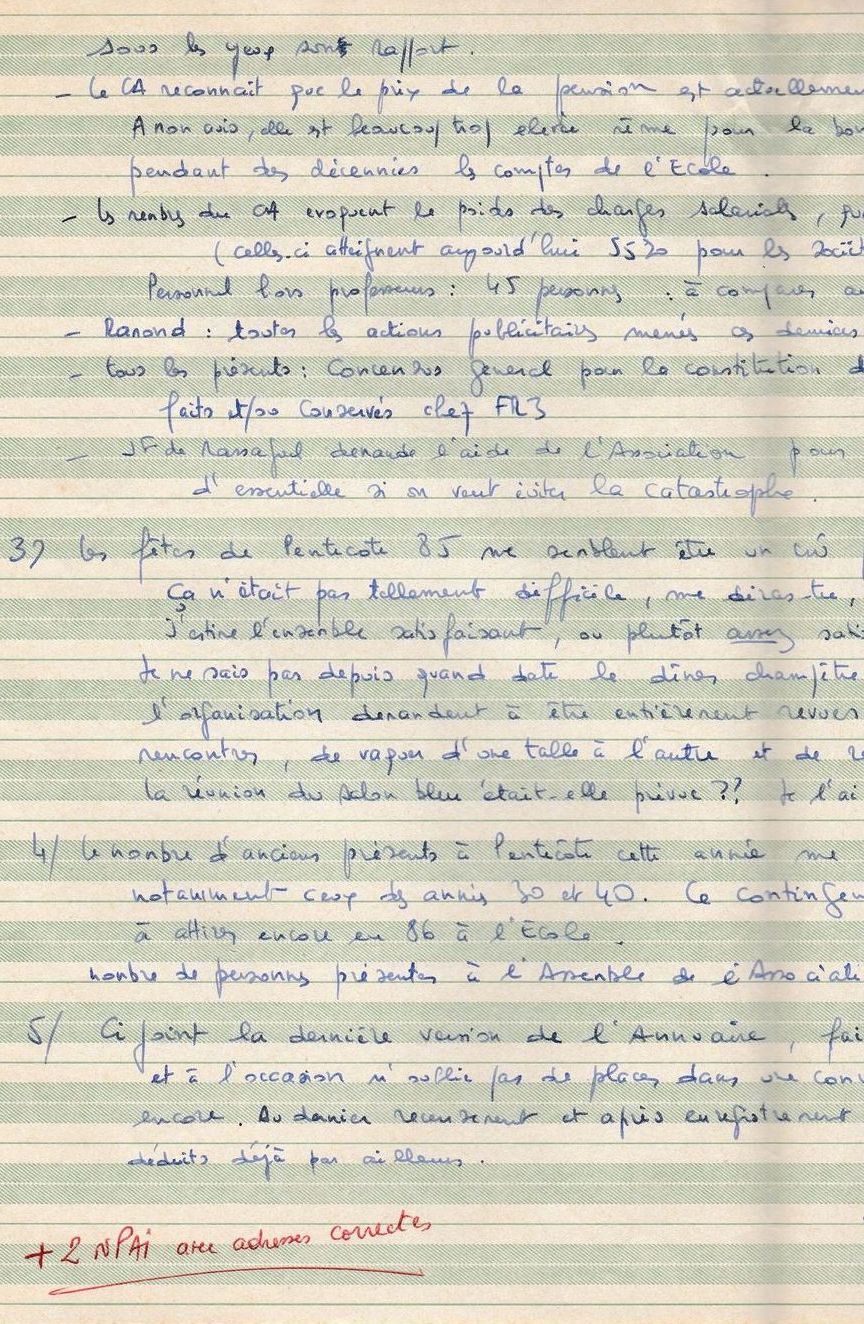 sous les yeux son rapport.
- Le CA reconnait que le prix de la pension est actuelleme
A mon avis, elle est beaucoup trop elevée même pour la bou
pendant des décennies les comptes de l'Ecole.
- les membres du CA evoquent le poids des charges salariales, qu
(celles-ci atteignent aujourd'hui 55% pour les sociét
Personnel hors professeurs : 45 personnes : à comparer au
- Ramond : toutes les actions publicitaires menés ces dernières
- tous les présents : Concensus general pour la constitution d
faits et/ou conservés chez FR3
- JF de demande l'aide de l'Association pour
d'essentielle si on veut éviter la catastrophe.
3) les fêtes de Pentecote 85 me semblent être un
Ça n'était pas tellement difficile, me diras-tu,
J'estime l'ensemble satisfaisant, ou plutôt assez sati
Je ne sais pas depuis quand date le dîner champêtre
l'organisation demandent à être entièrement revues
rencontres, de vaquer d'une table à l'autre et de
la réunion du salon bleu était-elle prévue ?? Je l'ai
4/ Le nombre d'anciens présents à Pentecôte cette année me
notamment ceux des années 30 et 40. Ce contingen
à attirer encore en 86 à l'Ecole.
nombre de personnes présentes à l'Assemblé de l'Associati
5/ Ci joint la dernière version de l'Annuaire, fai
et à l'occasion n'oublie pas de places dans une con
encore. Au dernier recensement et après enregistrement
déduits déjà par ailleurs.
+ 2 NPAi avec adresses correctes